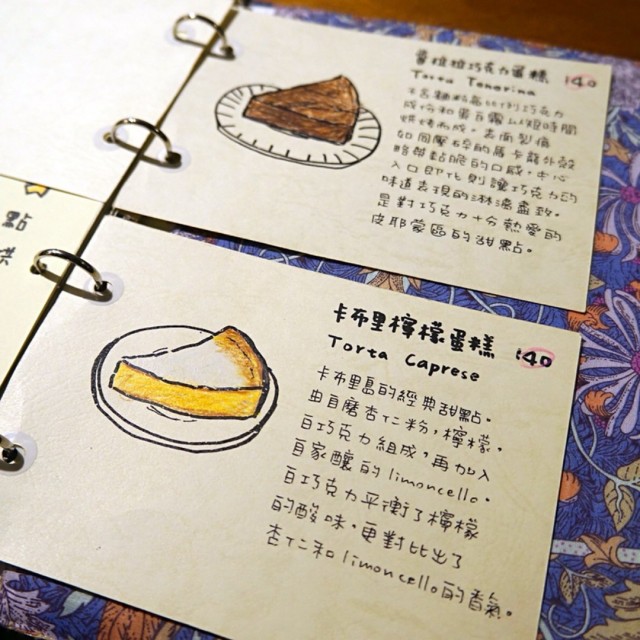 點
巧克力蛋糕 140
Torta Tenerina
成份和蛋白霜以短時間
烘烤而成。表面裂痕
如同壓碎的馬卡龍外殼
略帶黏脆的口感，中心
入口即化則讓巧克力的
味道表現的淋漓盡致。
是對巧克力十分熱愛的
皮耶蒙區的甜點。
卡布里檸檬蛋糕 140
Torta Caprese
卡布里島的經典甜點。
由自磨杏仁粉，檸檬，
白巧克力組成，再加入
自家釀的limoncello。
白巧克力平衡了檸檬
的酸味，更對比出了
杏仁和limoncello的香氣。